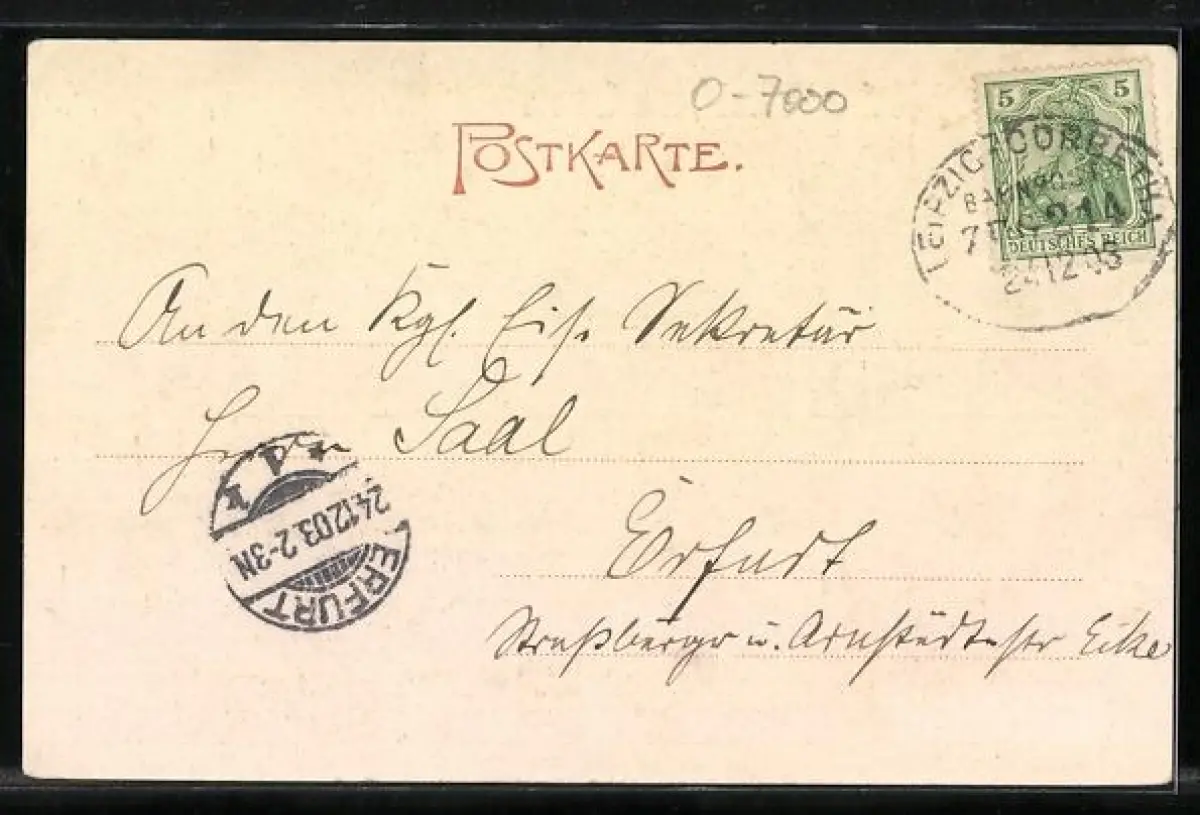 O-7000
POSTKARTE.
5 5
DEUTSCHES REICH
LEIPZIG CORBETHA
BAHNPOST
ZUG 214
24.12.03
An den Kgl. Eis. Sekretär
Herrn Saal
Erfurt
Straßbergr u. Arnstädtestr Ecke
ERFURT
24.12.03. 2-3N.